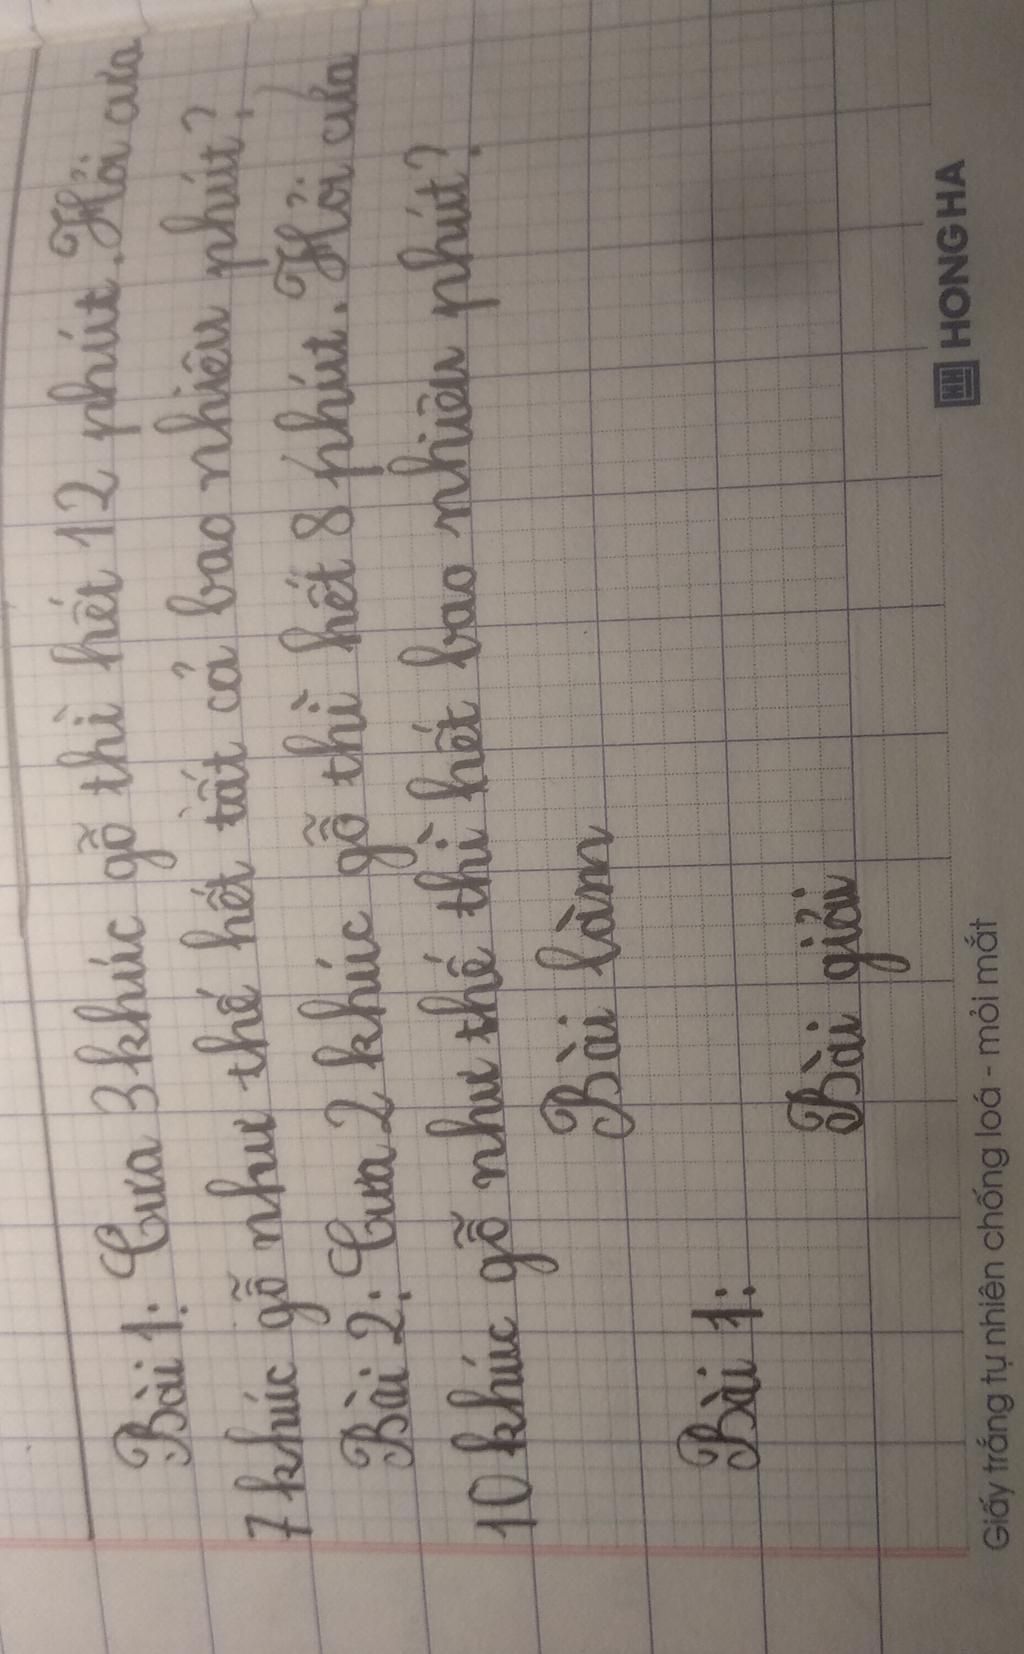 Bài 1: Cưa 3 khúc gỗ thì hết 12 phút. Hỏi cưa
7 khúc gỗ như thế hết tất cả bao nhiêu phút?
Bài 2: Cưa 2 khúc gỗ thì hết 8 phút. Hỏi cưa
10 khúc gỗ như thế thì hết bao nhiêu phút?
Bài làm
Bài 1:
Bài giải
Giấy trắng tự nhiên chống loá - mỏi mắt
HH HONG HA